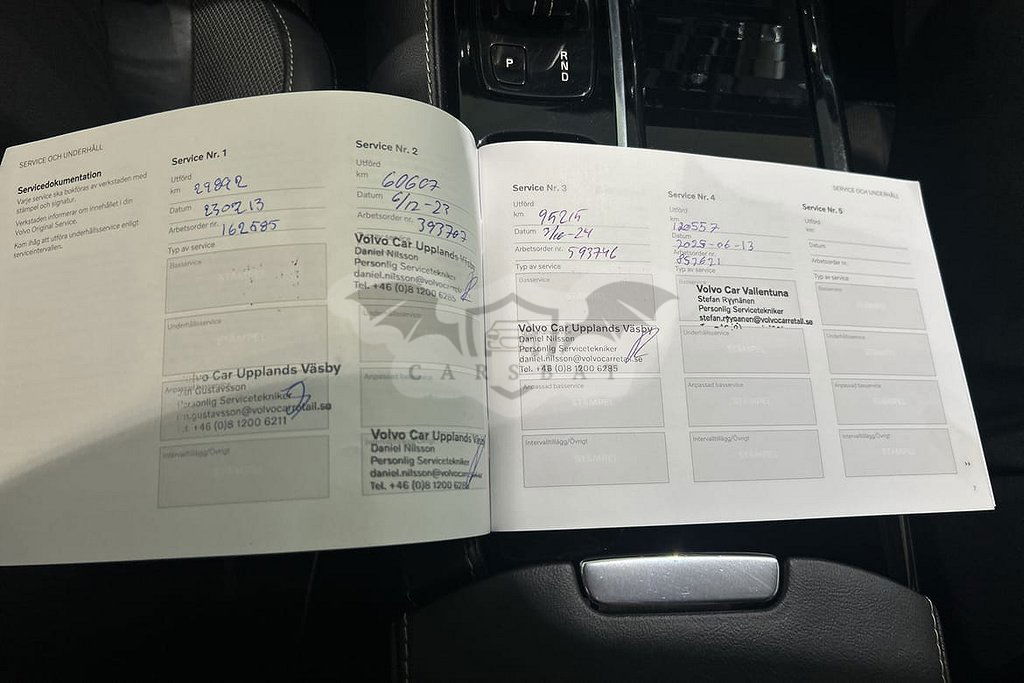 P
R
N
D
SERVICE OCH UNDERHÅLL
Servicedokumentation
Varje service ska bokföras av verkstaden med
stämpel och signatur.
Verkstaden informerar om innehållet i din
Volvo Original Service.
Kom ihåg att utföra underhållsservice enligt
serviceintervallen.
Service Nr. 1
Utförd
km 29892
Datum 230213
Arbetsorder nr. 162585
Typ av service
Basservice
Underhållsservice
Volvo Car Upplands Väsby
Gustavsson
Personlig Servicetekniker
gustavsson@volvocarretail.se
+46 (0)8 1200 6211
Anpassad basservice
Intervalltillägg/Övrigt
Service Nr. 2
Utförd
km 60607
Datum 6/12-23
Arbetsorder nr. 393707
Volvo Car Upplands Väsby
Daniel Nilsson
Personlig Servicetekniker
daniel.nilsson@volvocarreta
Tel. +46 (0)8 1200 6285
Volvo Car Upplands Väsby
Daniel Nilsson
Personlig Servicetekniker
daniel.nilsson@volvocar
Tel. +46 (0)8 1200 628
SERVICE OCH UNDERHÅLL
Service Nr. 3
Utförd
km 95215
Datum /10-24
Arbetsorder nr. 593746
Typ av service
Basservice
Volvo Car Upplands Väsby
Daniel Nilsson
Personlig Servicetekniker
daniel.nilsson@volvocarretail.se
Tel. +46 (0)8 1200 6285
Anpassad basservice
STÄMPEL
Intervalltillägg/Övrigt
STÄMPEL
Service Nr. 4
Utförd
km 120557
Datum 2025-06-13
Arbetsorder nr. 857621
Typ av service
Basservice
Volvo Car Vallentuna
Stefan Ryynänen
Personlig Servicetekniker
stefan.ryynanen@volvocarretail.se
Underhållsservice
STÄMPEL
Anpassad basservice
STÄMPEL
Intervalltillägg/Övrigt
STÄMPEL
Service Nr. 5
Utförd
km:
Datum
Arbetsorder nr.
Typ av service
Basservice
STÄMPEL
Underhållsservice
STÄMPEL
Anpassad basservice
STÄMPEL
Intervalltillägg/Övrigt
STÄMPEL
7
CARSBAT